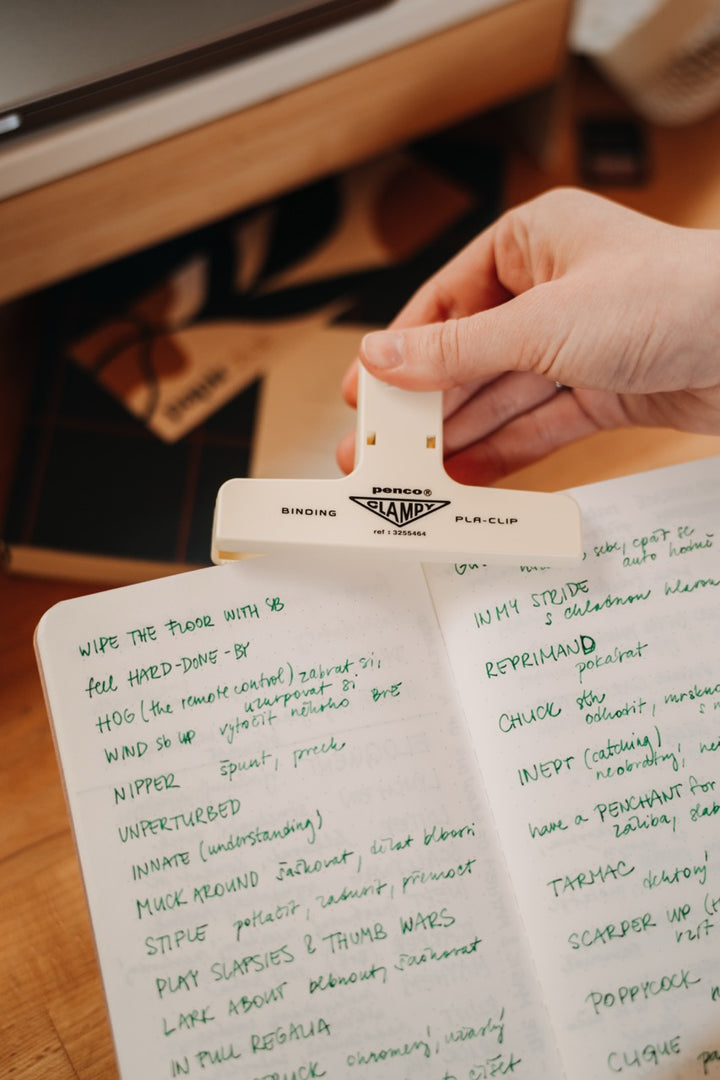 penco®
CLAMPY
BINDING
PLA-CLIP
ref : 3255464
WIPE THE FLOOR WITH SB
feel HARD-DONE-BY
HOG (the remote control) zabrat si,
uzurpovat si
WIND sb UP vytočit někoho BrE
NIPPER špunt, prcek
UNPERTURBED
INNATE (understanding)
MUCK AROUND šaškovat, dělat blbosti
STIPLE potlačit, zadusit, přemoct
PLAY SLAPSIES & THUMB WARS
LARK ABOUT blbnout, šaškovat
IN FULL REGALIA
ohromený, užaslý
sebe, cpát se
auto hodně
IN MY STRIDE
s chladnou hlavou
REPRIMAND
pokárat
CHUCK sth
odhodit,
INEPT (catching)
neobratný,
have a PENCHANT for
záliba,
TARMAC
SCARPER UP
vzít
POPPYCOCK
CLIQUE